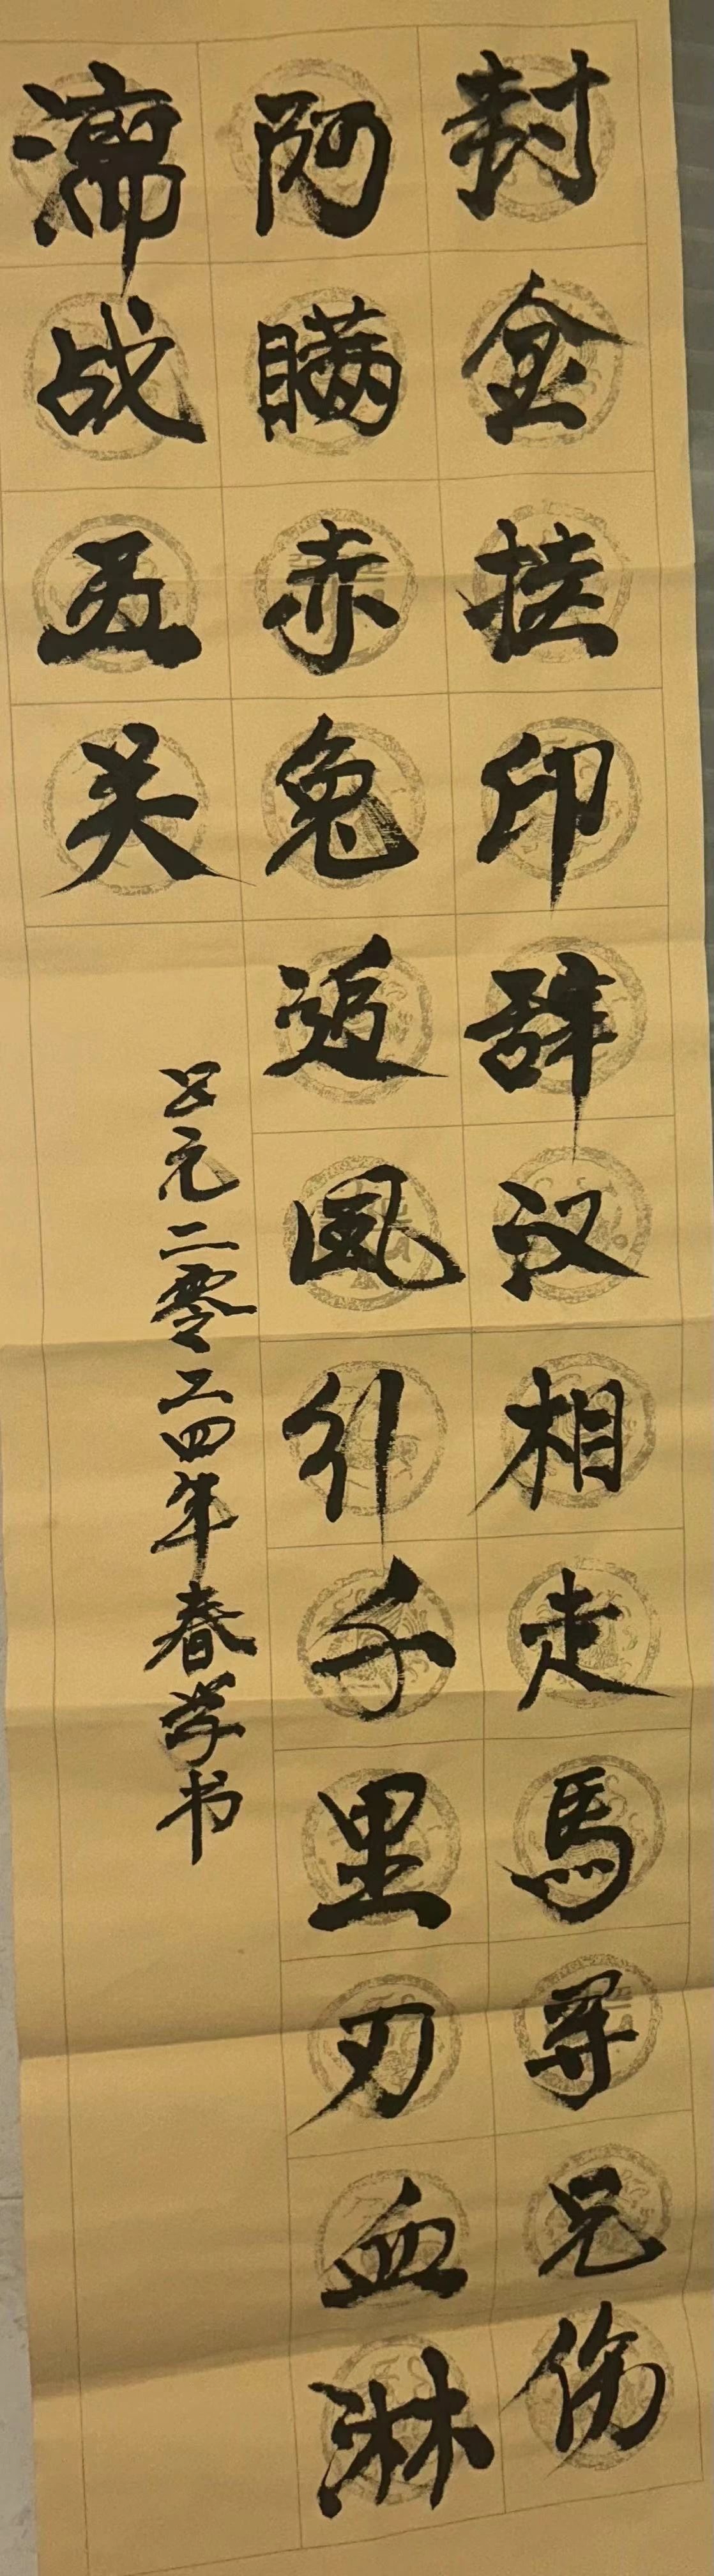 封金挂印辞汉相走马寻兄伤
阿瞒赤兔追风引千里刃血淋
漓战五关
公元二零二四年春学书